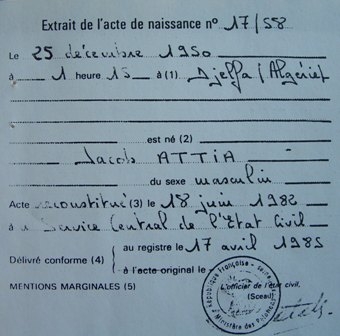 Extrait de l'acte de naissance nº 17/58
Le 25 décembre 1950
à 1 heure 15 à (1) Djelfa (Algérie)
est né (2)
Jacob ATTIA
du sexe masculin
Acte reconstitué (3) le 18 juin 1982
à Service Central de l'Etat Civil
au registre le 17 avril 1985
Délivré conforme (4)
à l'acte original le
MENTIONS MARGINALES (5)
L'officier de l'état civil,
(Sceau)
République Française
Ministère des Relations